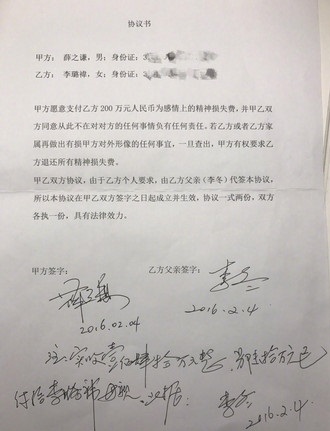 协议书
甲方：薛之谦，男；身份证：
乙方：李璐褘，女；身份证：
甲方愿意支付乙方 200 万元人民币为感情上的精神损失费，并甲乙双
方同意从此不在对对方的任何事情负有任何责任。若乙方或者乙方家
属再做出有损甲方对外形像的任何事宜，一旦查出，甲方有权要求乙
方退还所有精神损失费。
甲乙双方协议，由于乙方个人要求，由乙方父亲（李冬）代签本协议，
所以本协议在甲乙双方签字之日起成立并生效，协议一式两份，双方
各执一份，具有法律效力。
甲方签字：
乙方父亲签字：
薛之谦
李冬
2016.02.04
2016.2.4
注：实收壹佰肆拾万元整，陆拾万元已
付给李璐褘母亲
李冬
2016.2.4.